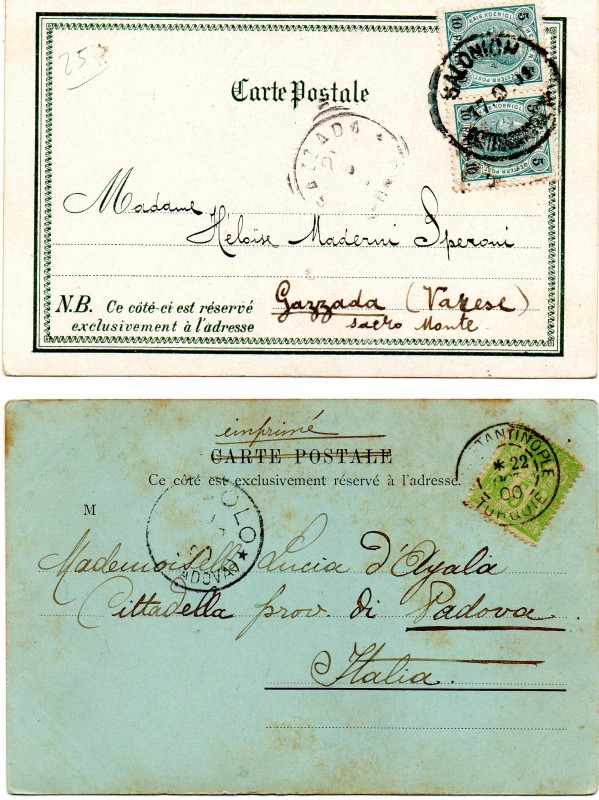 25
5
10
SALONICH
10
5
Carte Postale
GAZZADA
Madame
Héloïse Maderni Speroni
N.B. Ce côté-ci est réservé
exclusivement à l'adresse
Gazzada (Varese)
sacro Monte
imprimé
CARTE POSTALE
Ce côté est exclusivement réservé à l'adresse.
TANTINOPLE
* 22
00
TURQUIE
M
OLO
PADOVA
Mademoiselle Lucia d'Ayala
Cittadella prov. di Padova
Italia